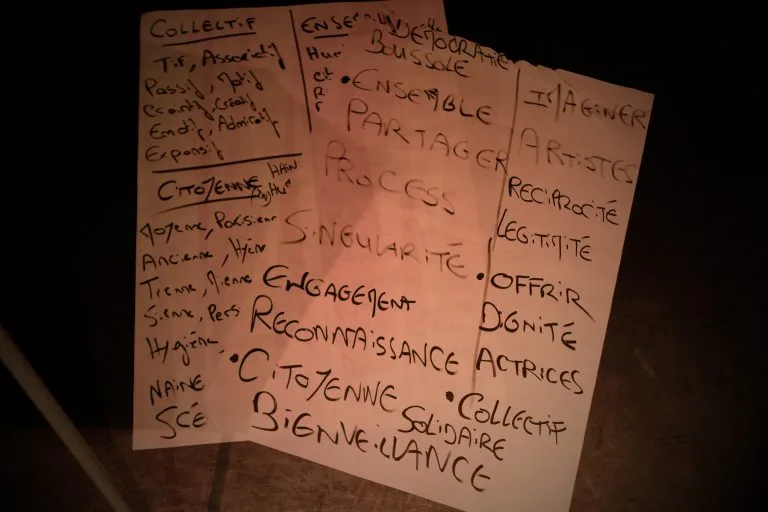 COLLECTIF
Tif, Associatif
Passif, Motif
Créatif
Emotif, Admiratif
Expansif
CITOYENNE
HAIN
Moyenne, Parisienne
Ancienne,
Tienne, Mienne
Sienne, Pers
Hygiène
NAINE
SCÉ
ENSEM
Hu
DÉMOCRATIE
BOUSSOLE
•ENSEMBLE
PARTAGER
PROCESS
SINGULARITÉ
ENGAGEMENT
RECONNAISSANCE
•CITOYENNE
SOLIDAIRE
BIENVEILLANCE
IMAGINER
ARTISTES
RÉCIPROCITÉ
LÉGITIMITÉ
•OFFRIR
DIGNITÉ
ACTRICES
•COLLECTIF